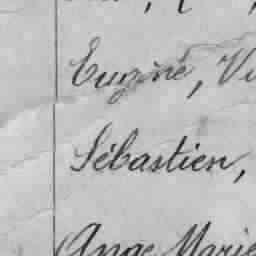 Eugène, Vi
Sébastien,
Ange Marie